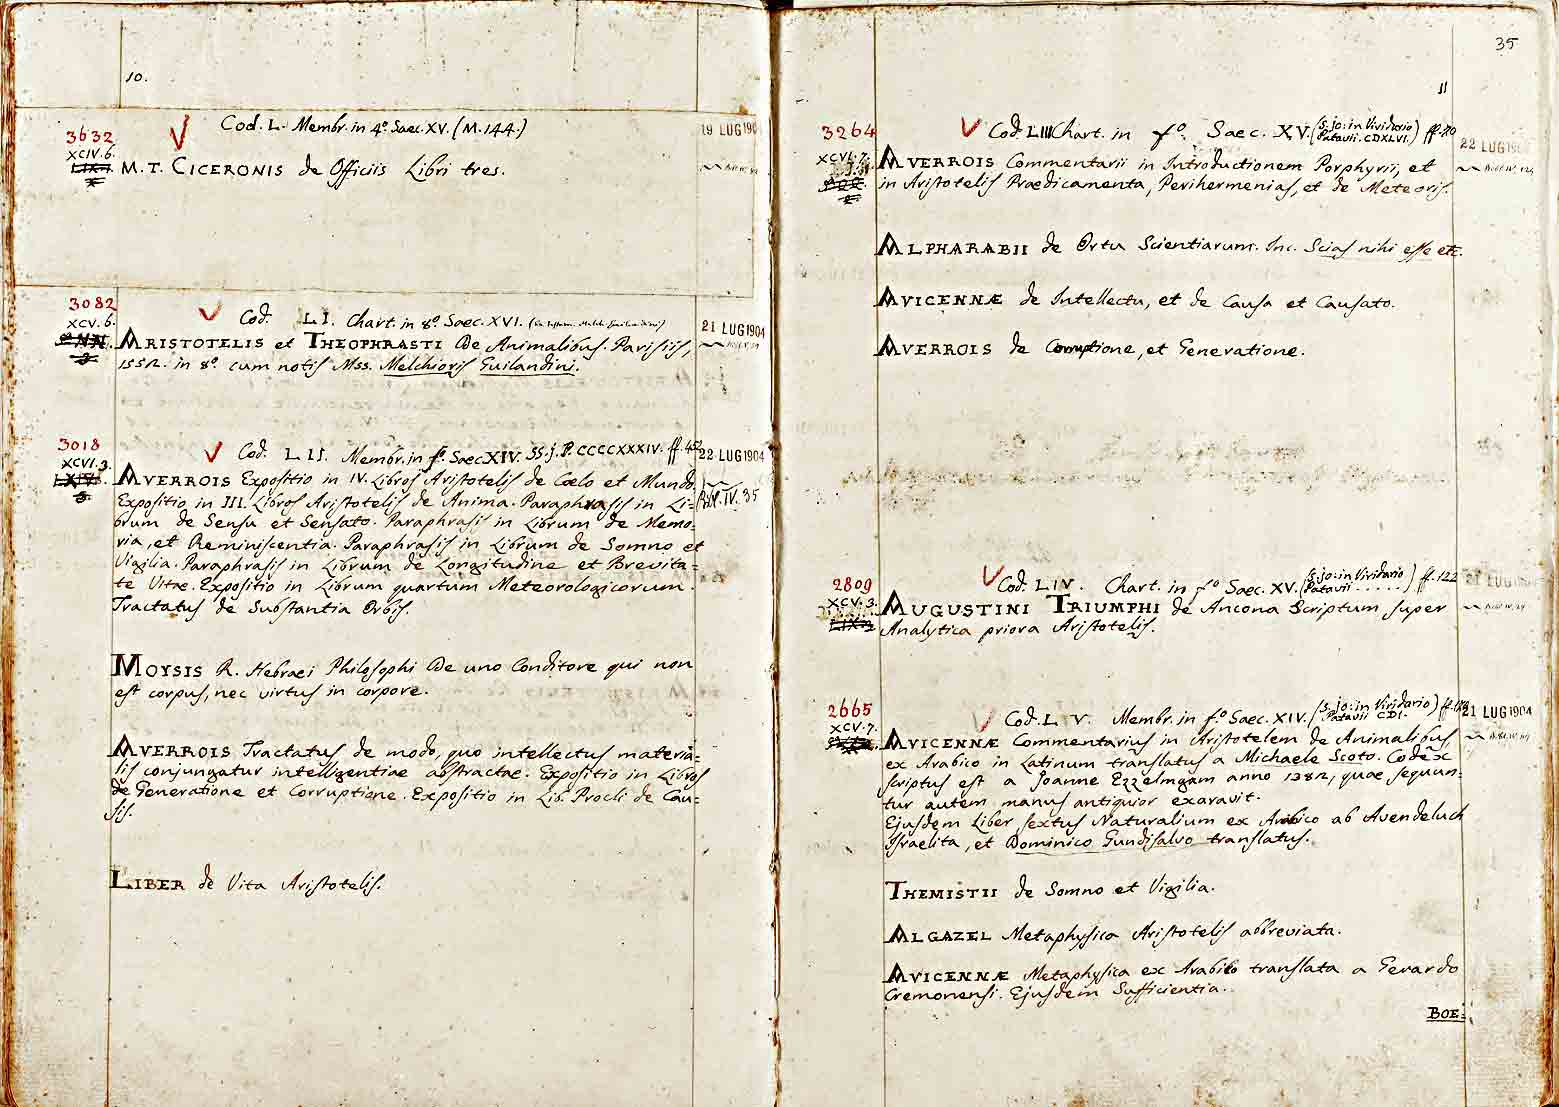 10.
3632
Cod. L. Membr. in 4º Saec. XV. (M. 144.)
19 LUG 190
XCIV. 6.
M. T. CICERONIS de Officiis Libri tres.
3082
Cod. LI. Chart. in 8º Saec. XVI.
21 LUG 1904
XCV. 6.
ARISTOTELIS et THEOPHRASTI De Animalibus. Parisiis,
1552. in 8º. cum notis Mss. Melchioris Guilandini.
3018
Cod. LII. Membr. in fº. Saec XIV. SS. j. P. CCCCXXXIV. ff. 452
22 LUG 1904
XCVI. 3.
AVERROIS Expositio in IV. Libros Aristotelis de Cœlo et Mundo
Expositio in III. Libros Aristotelis de Anima. Paraphrasis in Li=
IV. 35
brum de Sensu et Sensato. Paraphrasis in Librum de Memo-
ria, et Reminiscentia. Paraphrasis in Librum de Somno et
Vigilia. Paraphrasis in Librum de Longitudine et Brevita=
te Vitæ. Expositio in Librum quartum Meteorologicorum.
Tractatus de Substantia Orbis.
MOYSIS R. Hebraei Philosophi De uno Conditore qui non
est corpus, nec virtus in corpore.
AVERROIS Tractatus de modo, quo intellectus materia=
lis conjungatur intelligentiae abstractae. Expositio in Libros
de Generatione et Corruptione. Expositio in Lib. Procli de Cau=
sis.
LIBER de Vita Aristotelis.
35
11
3264
Cod. LIII Chart. in fº. Saec. XV. (S. Jo: in Viridario Patavii. CDXLVI.) ff. 110
22 LUG
XCVI. 7.
AVERROIS Commentarii in Introductionem Porphyrii, et
in Aristotelis Praedicamenta, Perihermenias, et de Meteoris.
ALPHARABII de Ortu Scientiarum. Inc. Scias nihi esse etc.
AVICENNÆ de Intellectu, et de Causa et Causato.
AVERROIS de Corruptione, et Generatione.
2809
Cod. LIV. Chart. in fº Saec. XV. (S. Jo: in Viridario Patavii . . . . . .) ff. 122
21 LUG
XCV. 3.
AUGUSTINI TRIUMPHI de Ancona Scriptum super
Analytica priora Aristotelis.
2665
Cod. L V. Membr. in fº. Saec. XIV. (S. Jo: in Viridario Patavii CDI.) ff.
21 LUG 1904
XCV. 7.
AVICENNÆ Commentarius in Aristotelem de Animalibus,
ex Arabico in Latinum translatus a Michaele Scoto. Codex
scriptus est a Joanne Ezzelmgam anno 1382, quae sequun-
tur autem manus antiquior exaravit.
Ejusdem Liber sextus Naturalium ex Arabico ab Avendeluch
Israelita, et Dominico Gundisalvo translatus.
THEMISTII de Somno et Vigilia.
ALGAZEL Metaphysica Aristotelis abbreviata.
AVICENNÆ Metaphysica ex Arabico translata a Gerardo
Cremonensi. Ejusdem Sufficientia.
BOE=